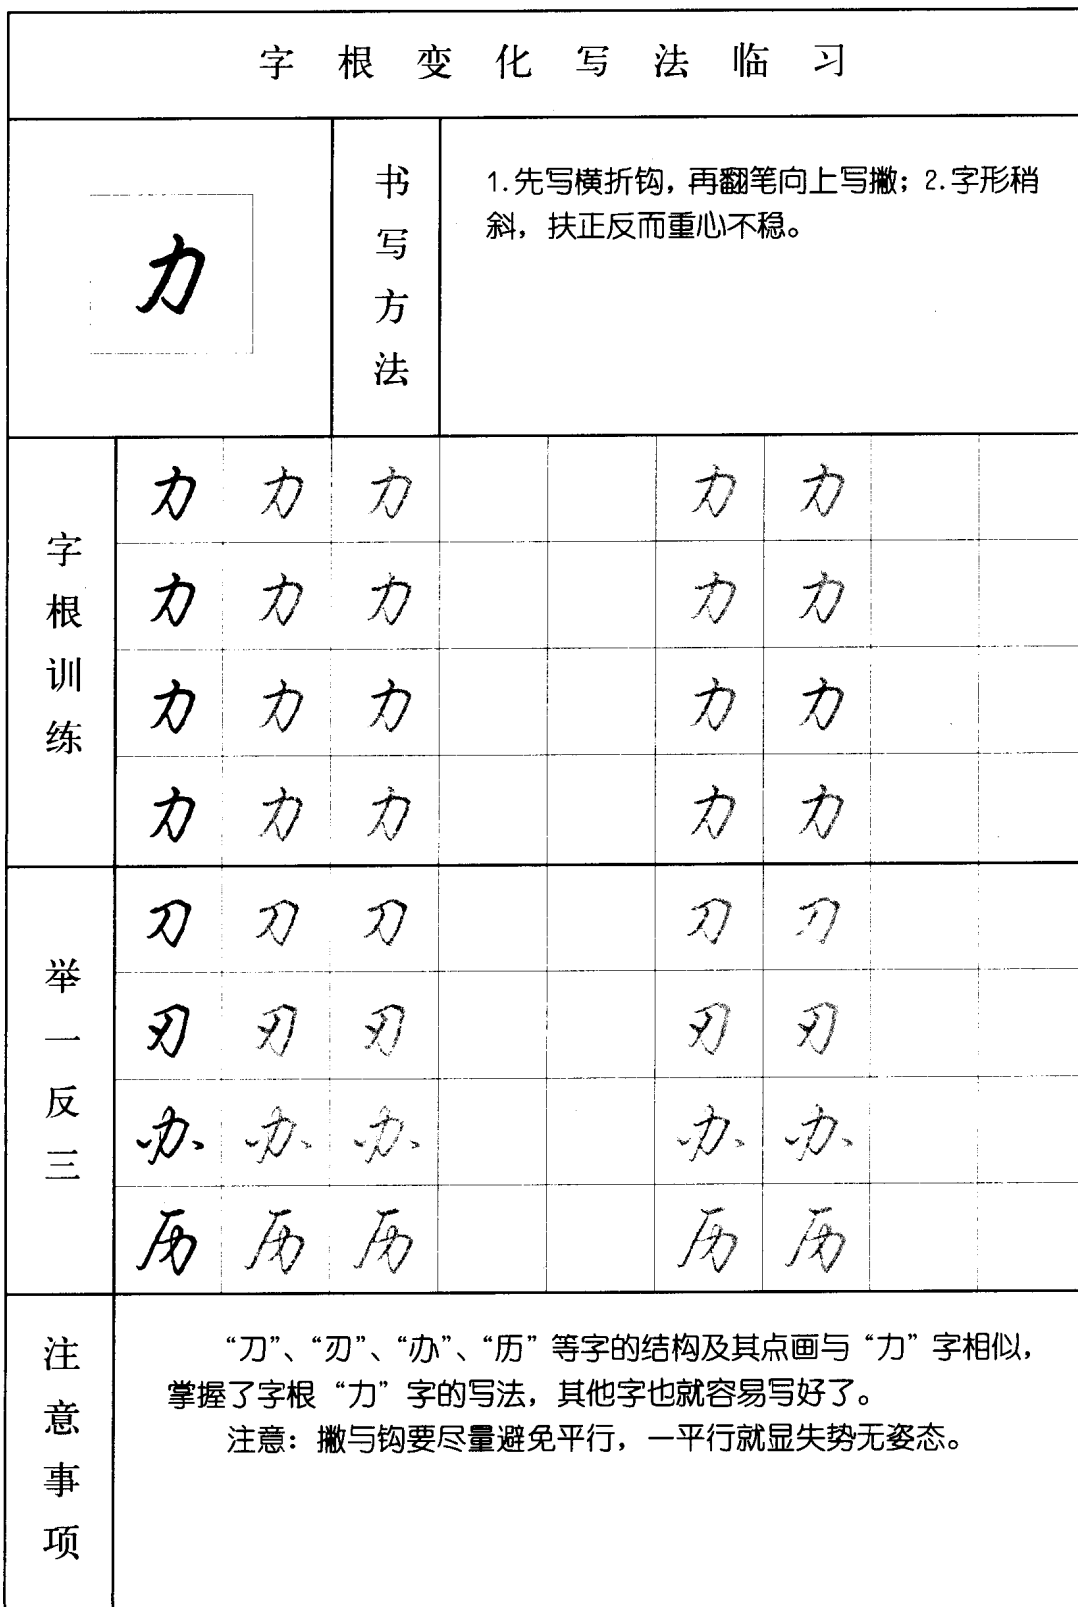 字根变化写法临习
力
书写方法
1.先写横折钩，再翻笔向上写撇；2.字形稍
斜，扶正反而重心不稳。
字根训练
力 力 力 力 力
力 力 力 力 力
力 力 力 力 力
力 力 力 力 力
举一反三
刀 刀 刀 刀 刀
刃 刃 刃 刃 刃
办 办 办 办 办
历 历 历 历 历
注意事项
“刀”、“刃”、“办”、“历”等字的结构及其点画与“力”字相似，
掌握了字根“力”字的写法，其他字也就容易写好了。
注意：撇与钩要尽量避免平行，一平行就显失势无姿态。